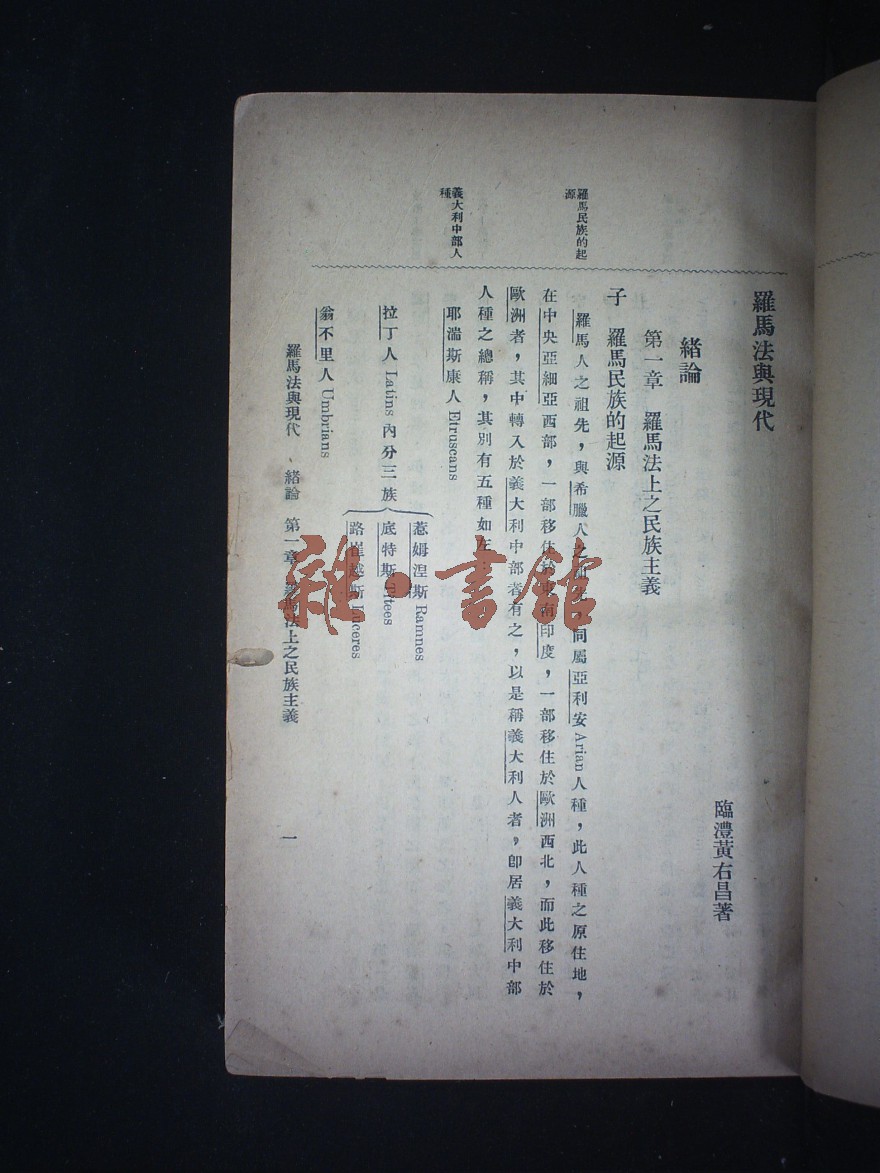 羅馬法與現代
臨澧黃右昌著
緒論
第一章　羅馬法上之民族主義
子　羅馬民族的起源
羅馬民族的起
源
羅馬人之祖先，與希臘人之祖先，同屬亞利安 Arian 人種，此人種之原住地，
在中央亞細亞西部，一部移住於東南印度，一部移住於歐洲西北，而此移住於
歐洲者，其中轉入於義大利中部者有之，以是稱義大利人者，卽居義大利中部
人種之總稱，其別有五種如左
義大利中部人
種
耶湍斯康人 Etruscans
拉丁人 Latins 內分三族
惹姆湼斯 Ramnes
底特斯
路崔越斯 Luceres
翁不里人 Umbrians
羅馬法與現代　緒論　第一章　羅馬法上之民族主義
一
雜·書館